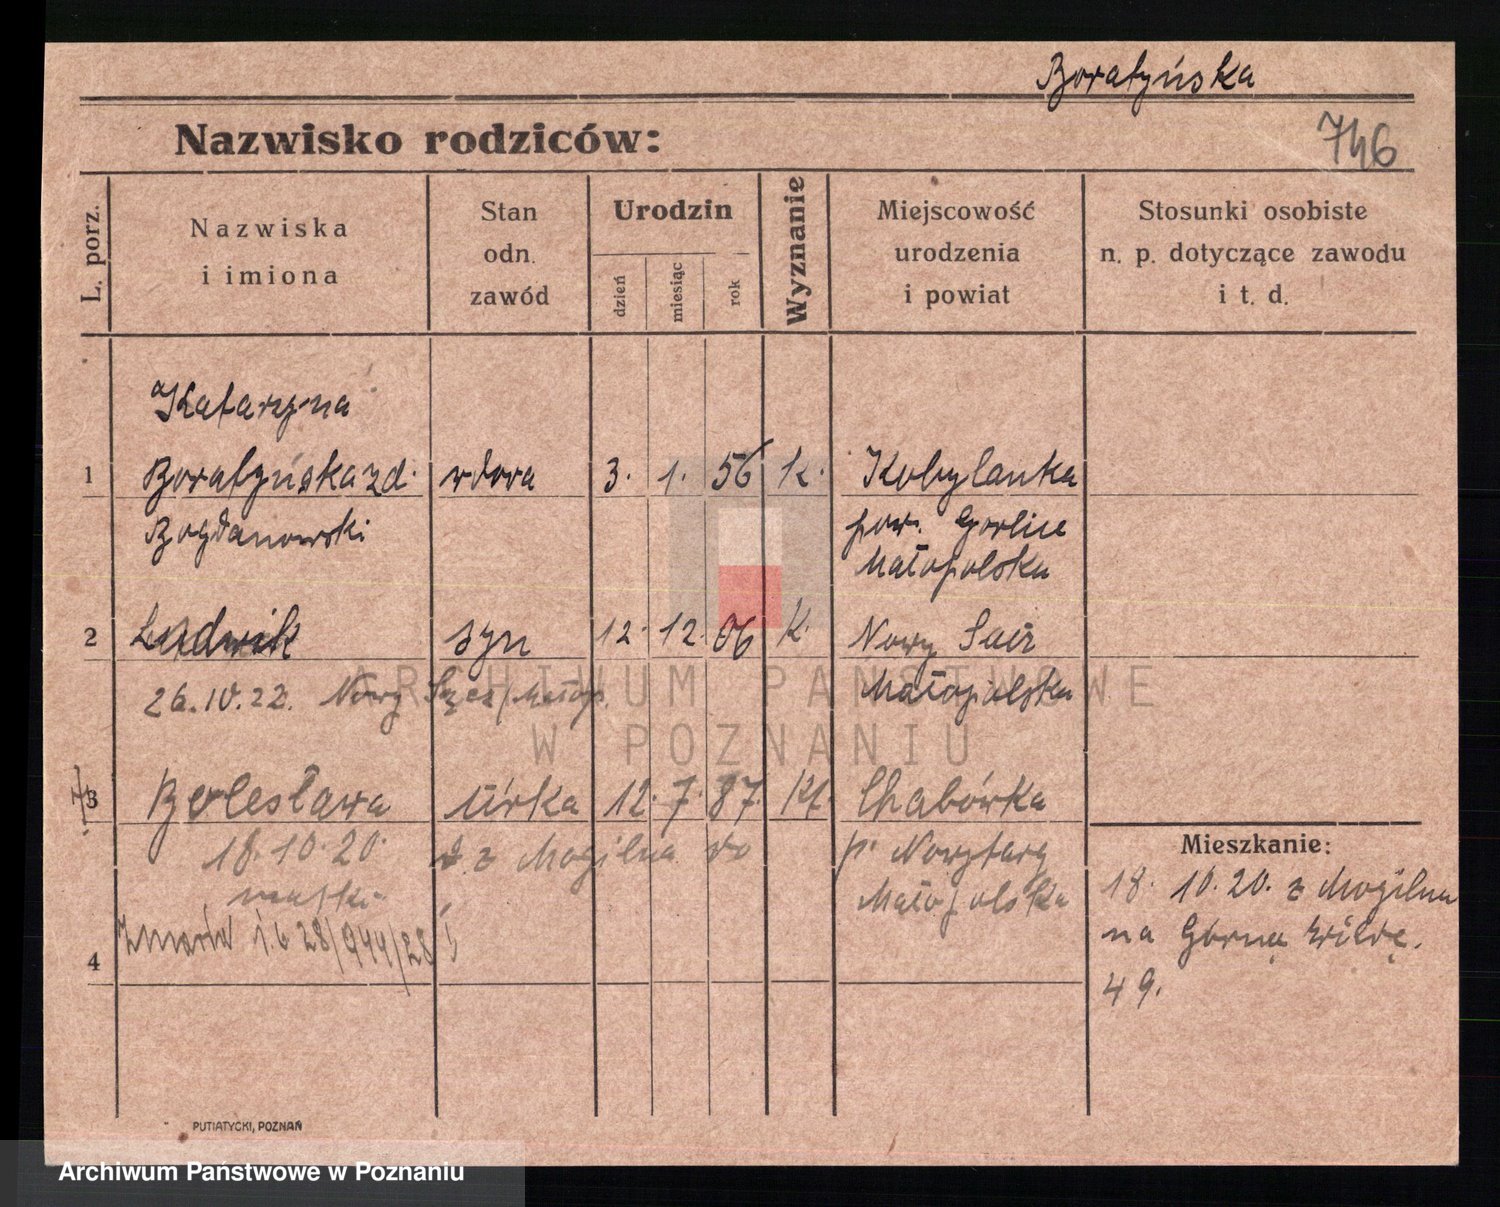 Boratyńska
Nazwisko rodziców:
746
L. porz.
Nazwiska
i imiona
Stan
odn.
zawód
Urodzin
dzień
miesiąc
rok
Wyznanie
Miejscowość
urodzenia
i powiat
Stosunki osobiste
n. p. dotyczące zawodu
i t. d.
Katarzyna
1 Boratyńska zd. wdowa 3. 1. 56 K. Kobylanka
Bogdanowski pow. Gorlice
Małopolska
2 Ludwik syn 12. 12. 06 K. Nowy Sącz
26.10.22. Nowy Małopolska
3 Bolesława córka 12. 7. 87. Kt. Chabówka
18.10.20. z Mogilna do p. Nowytarg
matki Małopolska
Zmarła
4
Mieszkanie:
18. 10. 20. z Mogilna
na Górną Wildę.
49.
PUTIATYCKI, POZNAŃ
ARCHIWUM PAŃSTWOWE
W POZNANIU
Archiwum Państwowe w Poznaniu